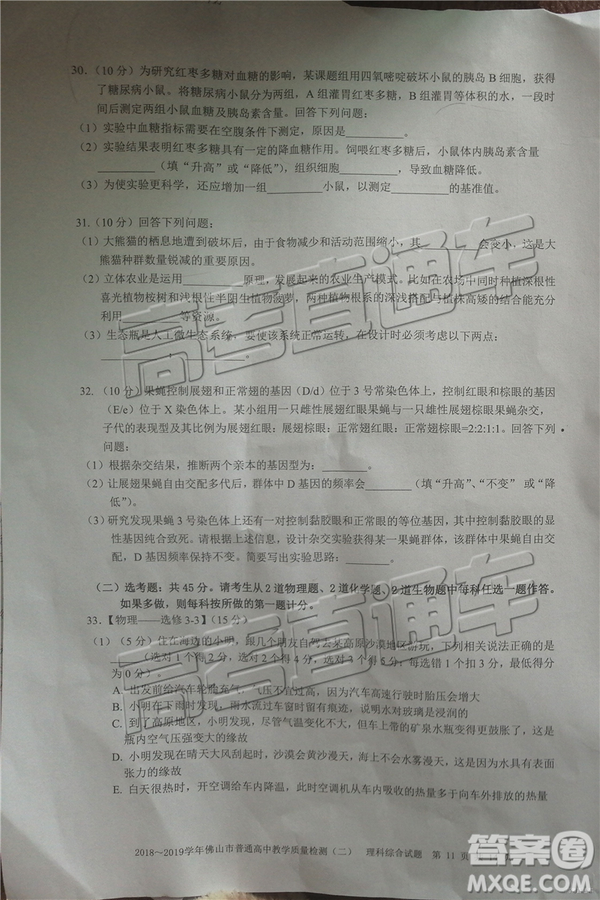 30.（10 分）为研究红枣多糖对血糖的影响，某课题组用四氧嘧啶破坏小鼠的胰岛 B 细胞，获得
了糖尿病小鼠。将糖尿病小鼠分为两组，A 组灌胃红枣多糖，B 组灌胃等体积的水，一段时
间后测定两组小鼠血糖及胰岛素含量。回答下列问题：
（1）实验中血糖指标需要在空腹条件下测定，原因是________。
（2）实验结果表明红枣多糖具有一定的降血糖作用。饲喂红枣多糖后，小鼠体内胰岛素含量
________（填“升高”或“降低”），组织细胞________，导致血糖降低。
（3）为使实验更科学，还应增加一组________小鼠，以测定________的基准值。
31.（10 分）回答下列问题：
（1）大熊猫的栖息地遭到破坏后，由于食物减少和活动范围缩小，其________会变小，这是大
熊猫种群数量锐减的重要原因。
（2）立体农业是运用________原理，发展起来的农业生产模式。比如在农场中同时种植深根性
喜光植物桉树和浅根性半阴生植物菠萝，两种植物根系的深浅搭配与植株高矮的结合能充分
利用________等资源。
（3）生态瓶是人工微生态系统，要使其系统正常运转，在设计时必须考虑以下两点：
________
32.（10 分）果蝇控制展翅和正常翅的基因（D/d）位于 3 号常染色体上，控制红眼和棕眼的基因
（E/e）位于 X 染色体上。某小组用一只雌性展翅红眼果蝇与一只雄性展翅棕眼果蝇杂交，
子代的表现型及其比例为展翅红眼：展翅棕眼：正常翅红眼：正常翅棕眼=2:2:1:1. 回答下列
问题：
（1）根据杂交结果，推断两个亲本的基因型为：________。
（2）让展翅果蝇自由交配多代后，群体中 D 基因的频率会________（填“升高”、“不变” 或“降
低”）。
（3）研究发现果蝇 3 号常染色体上还有一对控制黏胶眼和正常眼的等位基因，其中黏胶眼的显
性基因纯合致死。请根据以上的信息，设计杂交实验获得某一果蝇群体，该群体中果蝇自由
交配，D 基因频率保持不变。写出实验思路：________。
（二）选考题：共 45 分。请考生从 2 道物理题、2 道化学题、2 道生物题中每科任选一题作答。
如果多做，则每科按所做的第一题计分。
33.【物理——选修 3-3】（15 分）
（1）（5 分）住在海边的小明，跟几个朋友自驾去某高原沙漠地区游玩，下列相关说法正确的
是________（选对 1 个得 2 分，选对 2 个得 4 分，选对 3 个得 5 分，每选错 1 个扣 3 分，最低得分
为 0 分）
A. 出发前给汽车轮胎充气，气压不宜过高，因为汽车高速行驶时胎压会增大
B. 小明在下雨时发现，雨水流过车窗时留有痕迹，说明水对玻璃是浸润的
C. 到了高原地区，小明发现，尽管气温变化不大，但车上携带的矿泉水瓶变得更加鼓胀了，这是
瓶内空气压强变大的缘故
D. 小明发现在晴天大风刮起时，沙漠会黄沙漫天，海上不会水雾漫天，这是因为水具有表面
张力的缘故
E. 白天很热时，开空调给车内降温，此时空调机从车内吸收的热量多于向车外排放的热量
2018～2019学年佛山市普通高中教学质量检测（二） 理科综合试题 第 11 页
高考直通车
高考直通车
答案圈
MXQE.COM